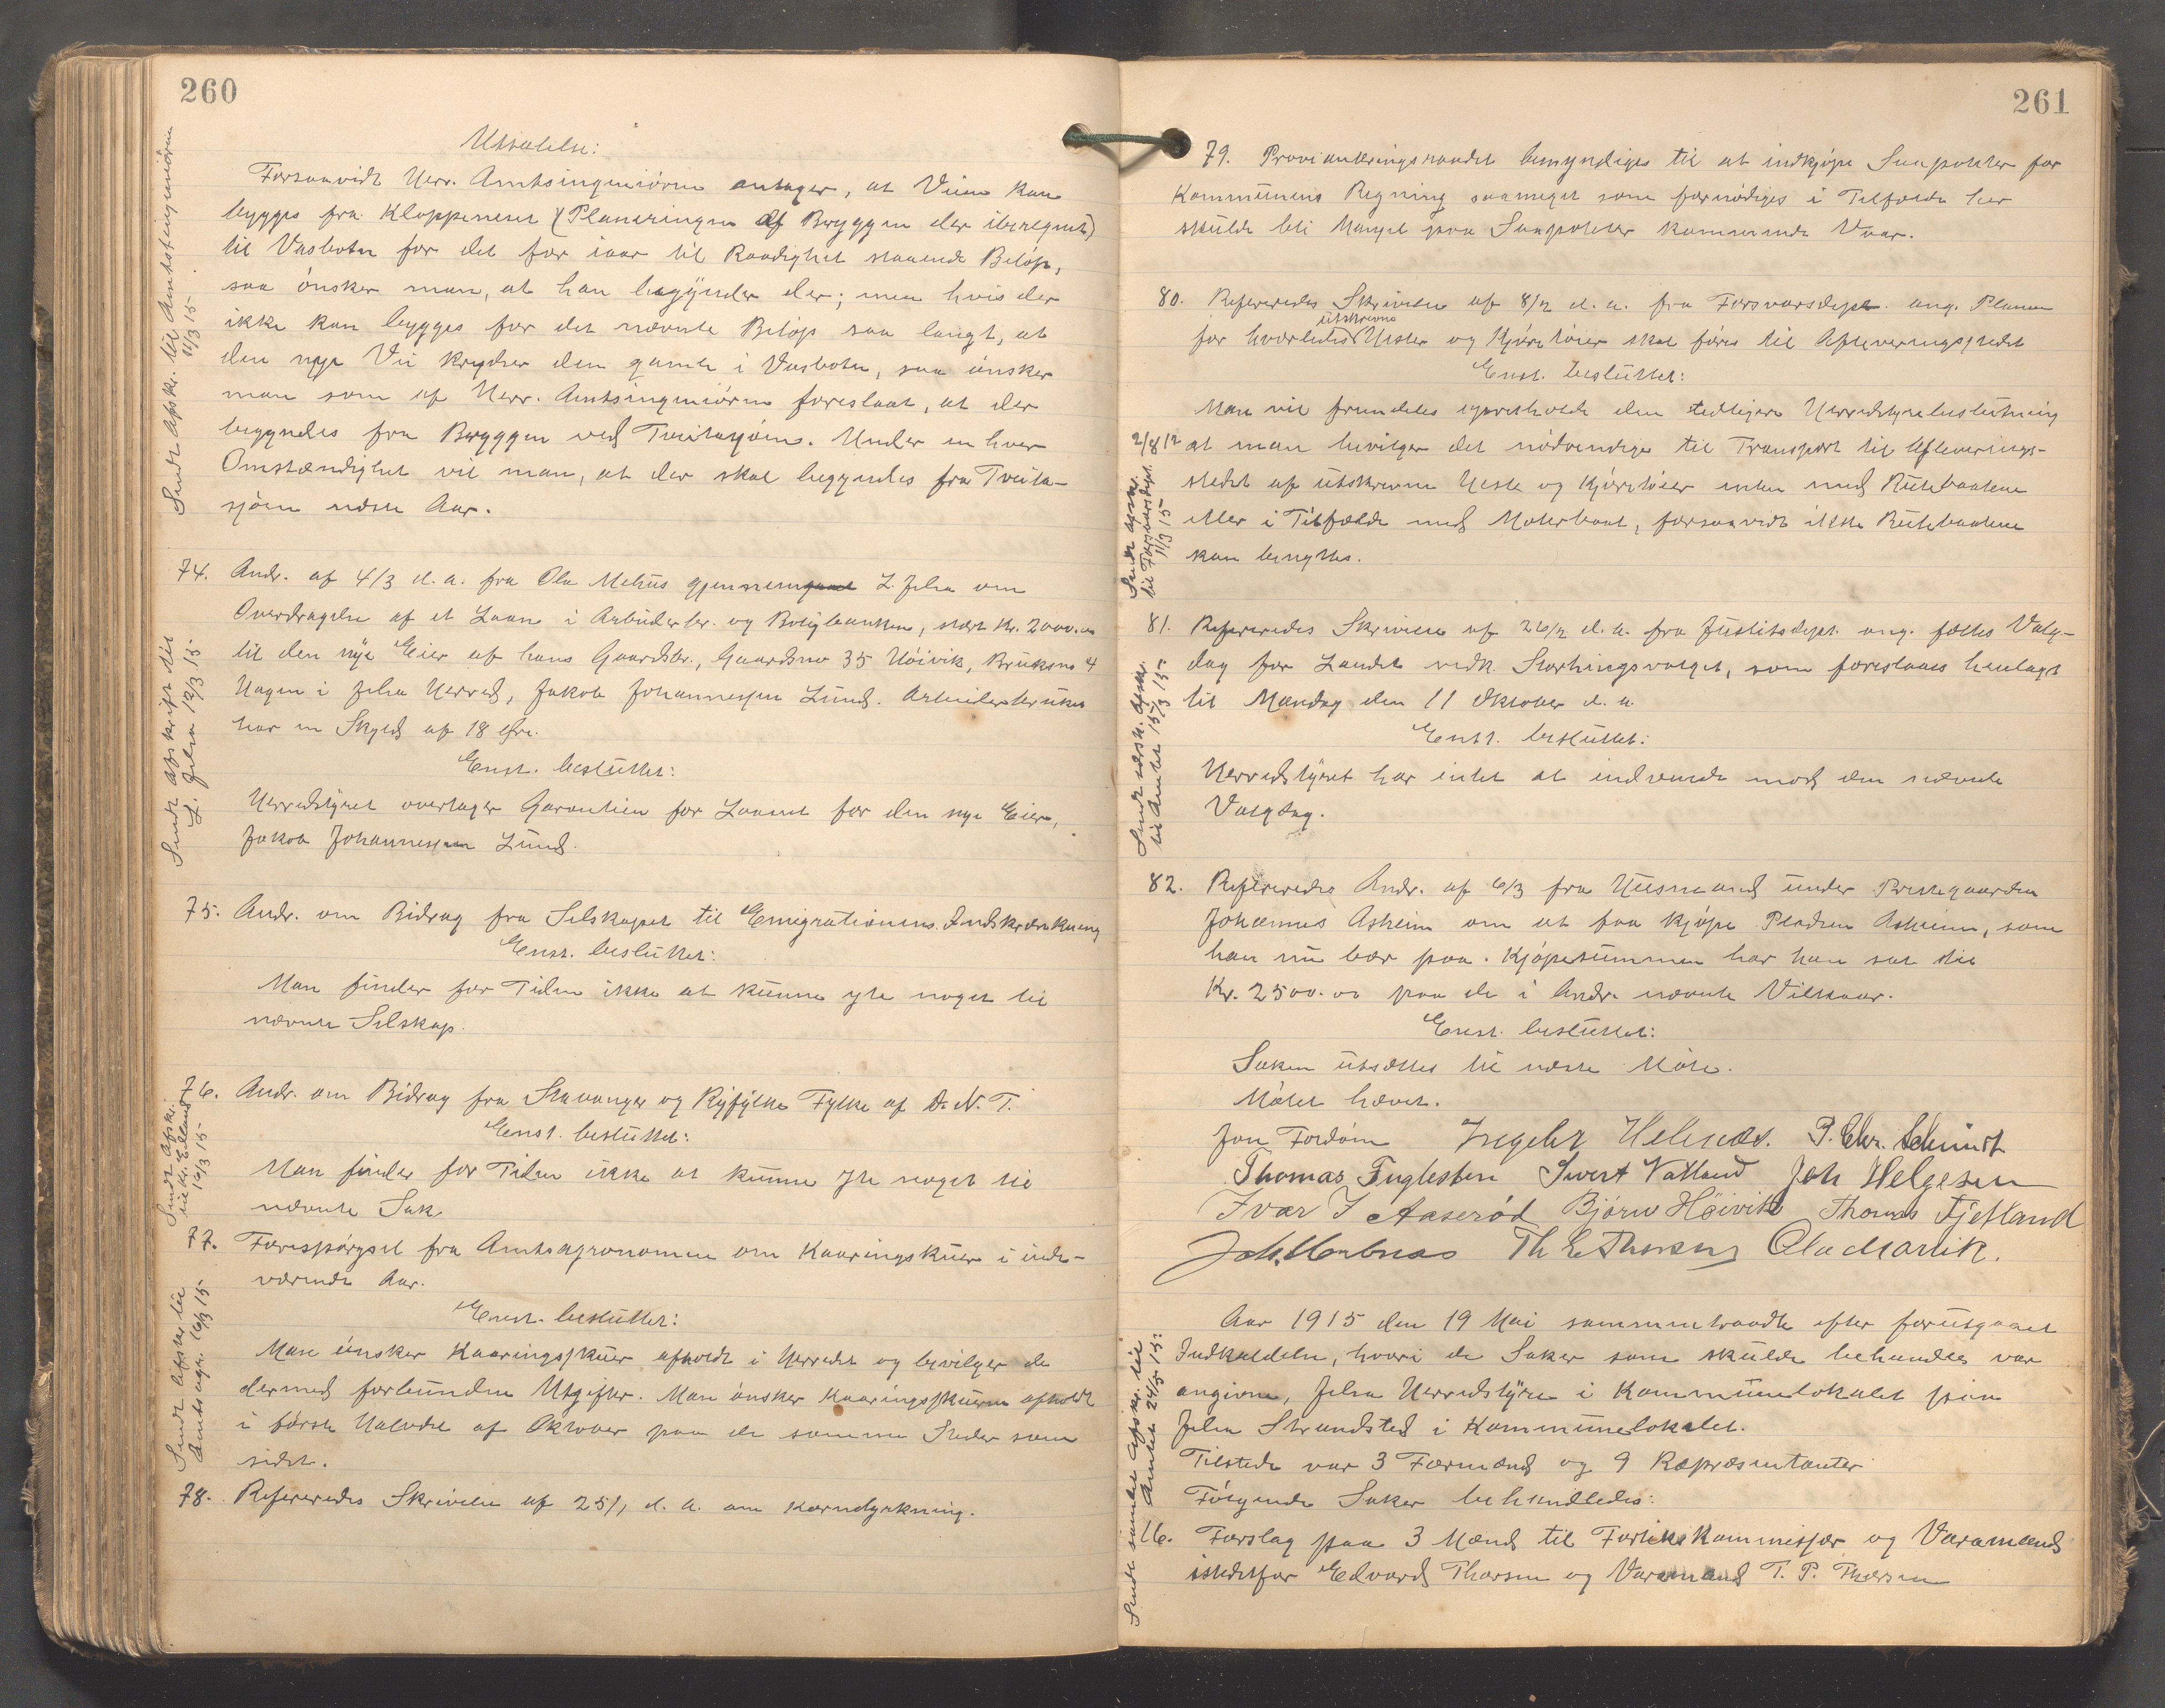 260
Uttalelse:
Forsaavidt Herr. Amtsingeniøren antager, at Veien kan
bygges fra Kloppeneset (Planeringen af Bryggen der iberegnet)
til Vasbotn for det for iaar til Raadighet staaende Beløp,
saa ønsker man, at han begynder der; men hvis der
ikke kan bygges for det nævnte Beløp saa langt, at
den nye Vei krydser den gamle i Vasbotn, saa ønsker
man som af Herr. Amtsingeniøren foreslaat, at der
begyndes fra Bryggen ved Tveitasjøen. Under en hver
Omstændighet vil man, at der skal begyndes fra Tveita-
sjøen næste Aar.
Sendt Afskr. til Amtsingeniøren
11/3 15.
74. Andr. af 4/3 d.a. fra Ola Mehus gjennem L. Jelsa om
Overdragelse af et Laan i Arbeiderbr. og Boligbanken, stort Kr. 2000.00
til den nye Eier af hans Gaardsbr., Gaardsno 35 Høivik, Bruksno 4
Hagen i Jelsa Herred, Jakob Johannessen Lund. Arbeiderbruket
har en Skyld af 18 Øre.
Enst. besluttet:
Herredstyret overtager Garantien for Laanet for den nye Eier,
Jakob Johannessen Lund.
Sendt Afskrift til
L. Jelsa 12/3 15
75. Andr. om Bidrag fra Selskapet til Emigrationens Indskrænkning
Enst. besluttet:
Man finder for Tiden ikke at kunne yte noget til
nævnte Selskap.
76. Andr. om Bidrag fra Stavanger og Ryfylke Fylke af D. N. T.
Enst. besluttet:
Man finder for Tiden ikke at kunne yte noget til
nævnte Sak
Sendt Afskr.
16/3 15
77. Forespørgsel fra Amtsagronomen om Kaaringskuer i inde-
værende Aar.
Enst. besluttet:
Man ønsker Kaaringsskuer afholdt i Herredet og bevilger de
dermed forbundne Utgifter. Man ønsker Kaaringsskuerne afholdt
i første Halvdel af Oktober paa de samme Steder som
sidst.
Sendt Afskr. til
Amtsagr. 16/3 15
78. Refereredes Skrivelse af 25/1 d.a. om Korndyrkning.
261
79. Provianteringsraadet bemyndiges til at indkjøpe Saapoteter for
Kommunens Regning saameget som fornødiges i Tilfælde her
skulde bli Mangel paa Saapoteter kommende Vaar.
80. Refereredes Skrivelse af 8/2 d.a. fra Forsvarsdept. ang. Planen
utskrevne
for hvorledes Hester og Kjøretøier skal føres til Afleveringsstedet
Enst. besluttet:
Man vil fremdeles opretholde den tidligere Herredstyrebeslutning
2/8 12 at man bevilger det nødvendige til Transport til Afleverings-
stedet af utskrevne Heste og Kjøretøier enten med Rutebaatene
eller i Tilfælde med Motorbaat, forsaavidt ikke Rutebaatene
kan benyttes.
Sendt Afskr.
til Forsvarsdept.
11/3 15
81. Refereredes Skrivelse af 26/2 d.a. fra Justitsdept. ang. fælles Valg-
dag for Landet vedk. Stortingsvalget, som foreslaaes henlagt
til Mandag den 11 Oktober d.a.
Enst. besluttet:
Herredstyret har intet at indvende mod den nævnte
Valgdag.
Sendt særsk. Afskr.
til Amtet 15/3 15
82. Refereredes Andr. af 6/3 fra Husmand under Prestegaarden
Johannes Askeim om at faa kjøpe Pladsen Askeim, som
han nu bor paa. Kjøpesummen har han sat til
Kr. 2500.00 paa de i Andr. nævnte Vilkaar.
Enst. besluttet:
Saken utsættes til næste Møte.
Møtet hævet.
Jon Fordøm Ingebr Helnæs. P. Chr. Schmidt
Thomas Fuglesten Sivert Vatland Joh Helgesen
Ivar I Aaserød Bjørn Høivik Thomas Fjetland
Th E Thorsen Ola Marvik.
Aar 1915 den 19 Mai sammentraadte efter forutgaaet
Indkaldelse, hvori de Saker som skulde behandles var
angivne, Jelsa Herredstyre i Kommunelokalet paa
Jelsa Strandsted i Kommunelokalet.
Tilstede var 3 Formænd og 9 Repræsentanter
Følgende Saker behandledes:
16. Forslag paa 3 Mænd til Forlikskommissær og Varamænd
istedetfor Edvard Thorsen og Varamand T. P. Thorsen
Sendt samdel Afskr. til
Amtet 24/5 15.